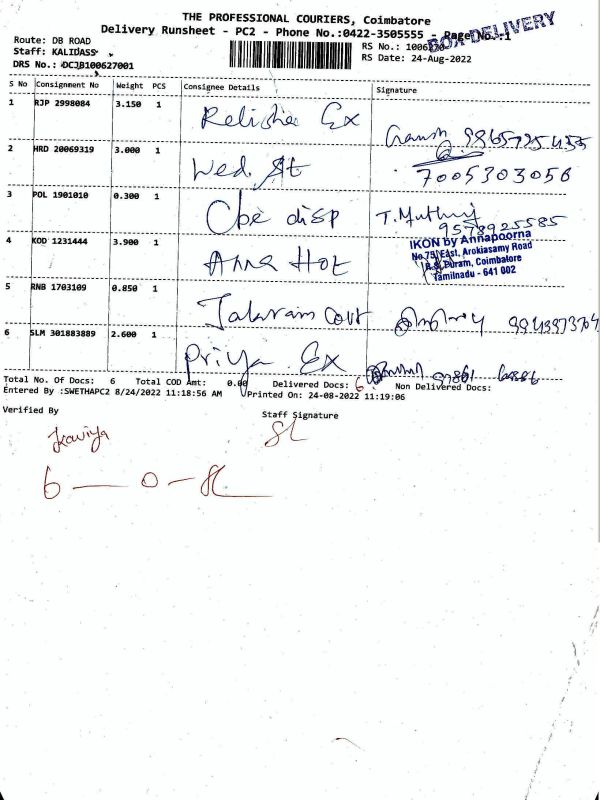 THE PROFESSIONAL COURIERS, Coimbatore
Delivery Runsheet - PC2 - Phone No.:0422-3505555 - Page No.:1
BOX DELIVERY
Route: DB ROAD
Staff: KALIDASS
DRS No.: DCJB100627001
RS No.:
RS Date: 24-Aug-2022
S No Consignment No Weight PCS Consignee Details Signature
1 RJP 2998084 3.150 1 Relisha Ex
2 HRD 20069319 3.000 1 Wed St 7005303056
3 POL 1901010 0.300 1 Cbe disp T. 9578925585
4 KOD 1231444 3.900 1 Anna Hot
IKON by Annapoorna
No.75, East, Arokiasamy Road
R.S. Puram, Coimbatore
Tamilnadu - 641 002
5 RNB 1703109 0.850 1 Jalaram
6 SLM 301883889 2.600 1 Priya Ex
Total No. Of Docs: 6 Total COD Amt: 0.00 Delivered Docs: 6 Non Delivered Docs:
Entered By :SWETHAPC2 8/24/2022 11:18:56 AM Printed On: 24-08-2022 11:19:06
Verified By Staff Signature
Kaviya
6 — 0 —